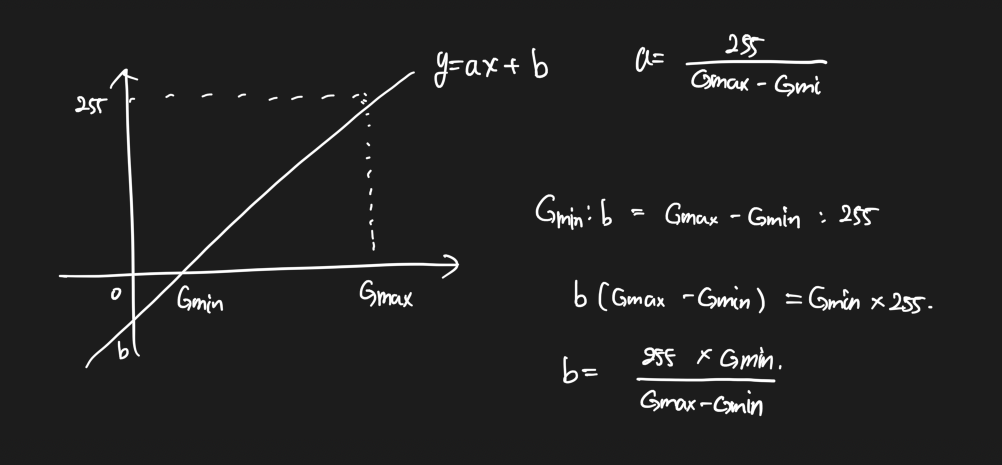 y=ax+b
255
0
Gmin
Gmax
b
a= 255 / Gmax - Gmi
Gmin : b = Gmax - Gmin : 255
b (Gmax - Gmin) = Gmin × 255.
b= 255 × Gmin. / Gmax - Gmin